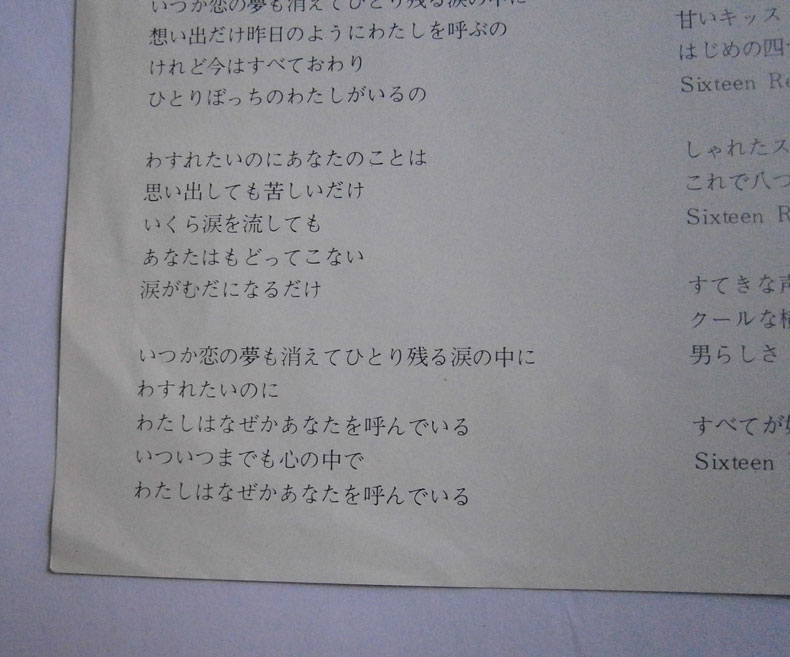 いつか恋の夢も消えてひとり残る涙の中に
想い出だけ昨日のようにわたしを呼ぶの
けれど今はすべておわり
ひとりぼっちのわたしがいるの
わすれたいのにあなたのことは
思い出しても苦しいだけ
いくら涙を流しても
あなたはもどってこない
涙がむだになるだけ
いつか恋の夢も消えてひとり残る涙の中に
わすれたいのに
わたしはなぜかあなたを呼んでいる
いついつまでも心の中で
わたしはなぜかあなたを呼んでいる
甘いキッス
はじめの四
Sixteen
しゃれたス
これで八つ
Sixteen
すてきな声
クールな
男らしさ
すべてが
Sixteen